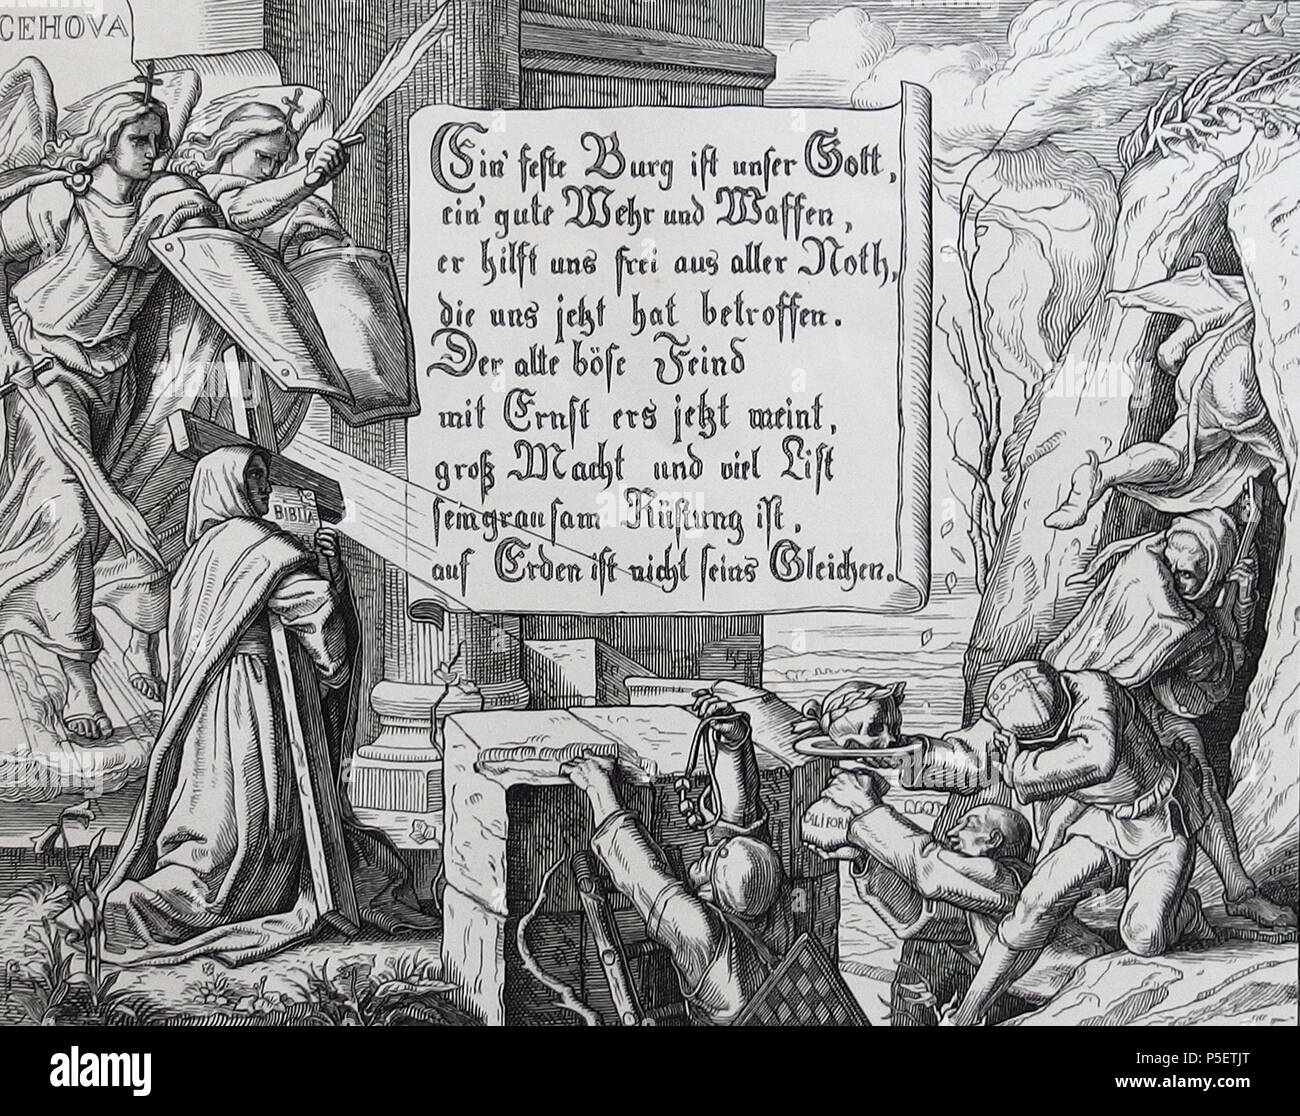 CEHOVA
Ein' feste Burg ist unser Gott,
ein' gute Wehr und Waffen,
er hilft uns frei aus aller Noth,
die uns jetzt hat betroffen.
Der alte böse Feind
mit Ernst ers jetzt meint,
groß Macht und viel List
sein grausam Rüstung ist,
auf Erden ist nicht seins Gleichen.
BIBLIA
CALIFORN
alamy
Image ID: P5ETJT
www.alamy.com